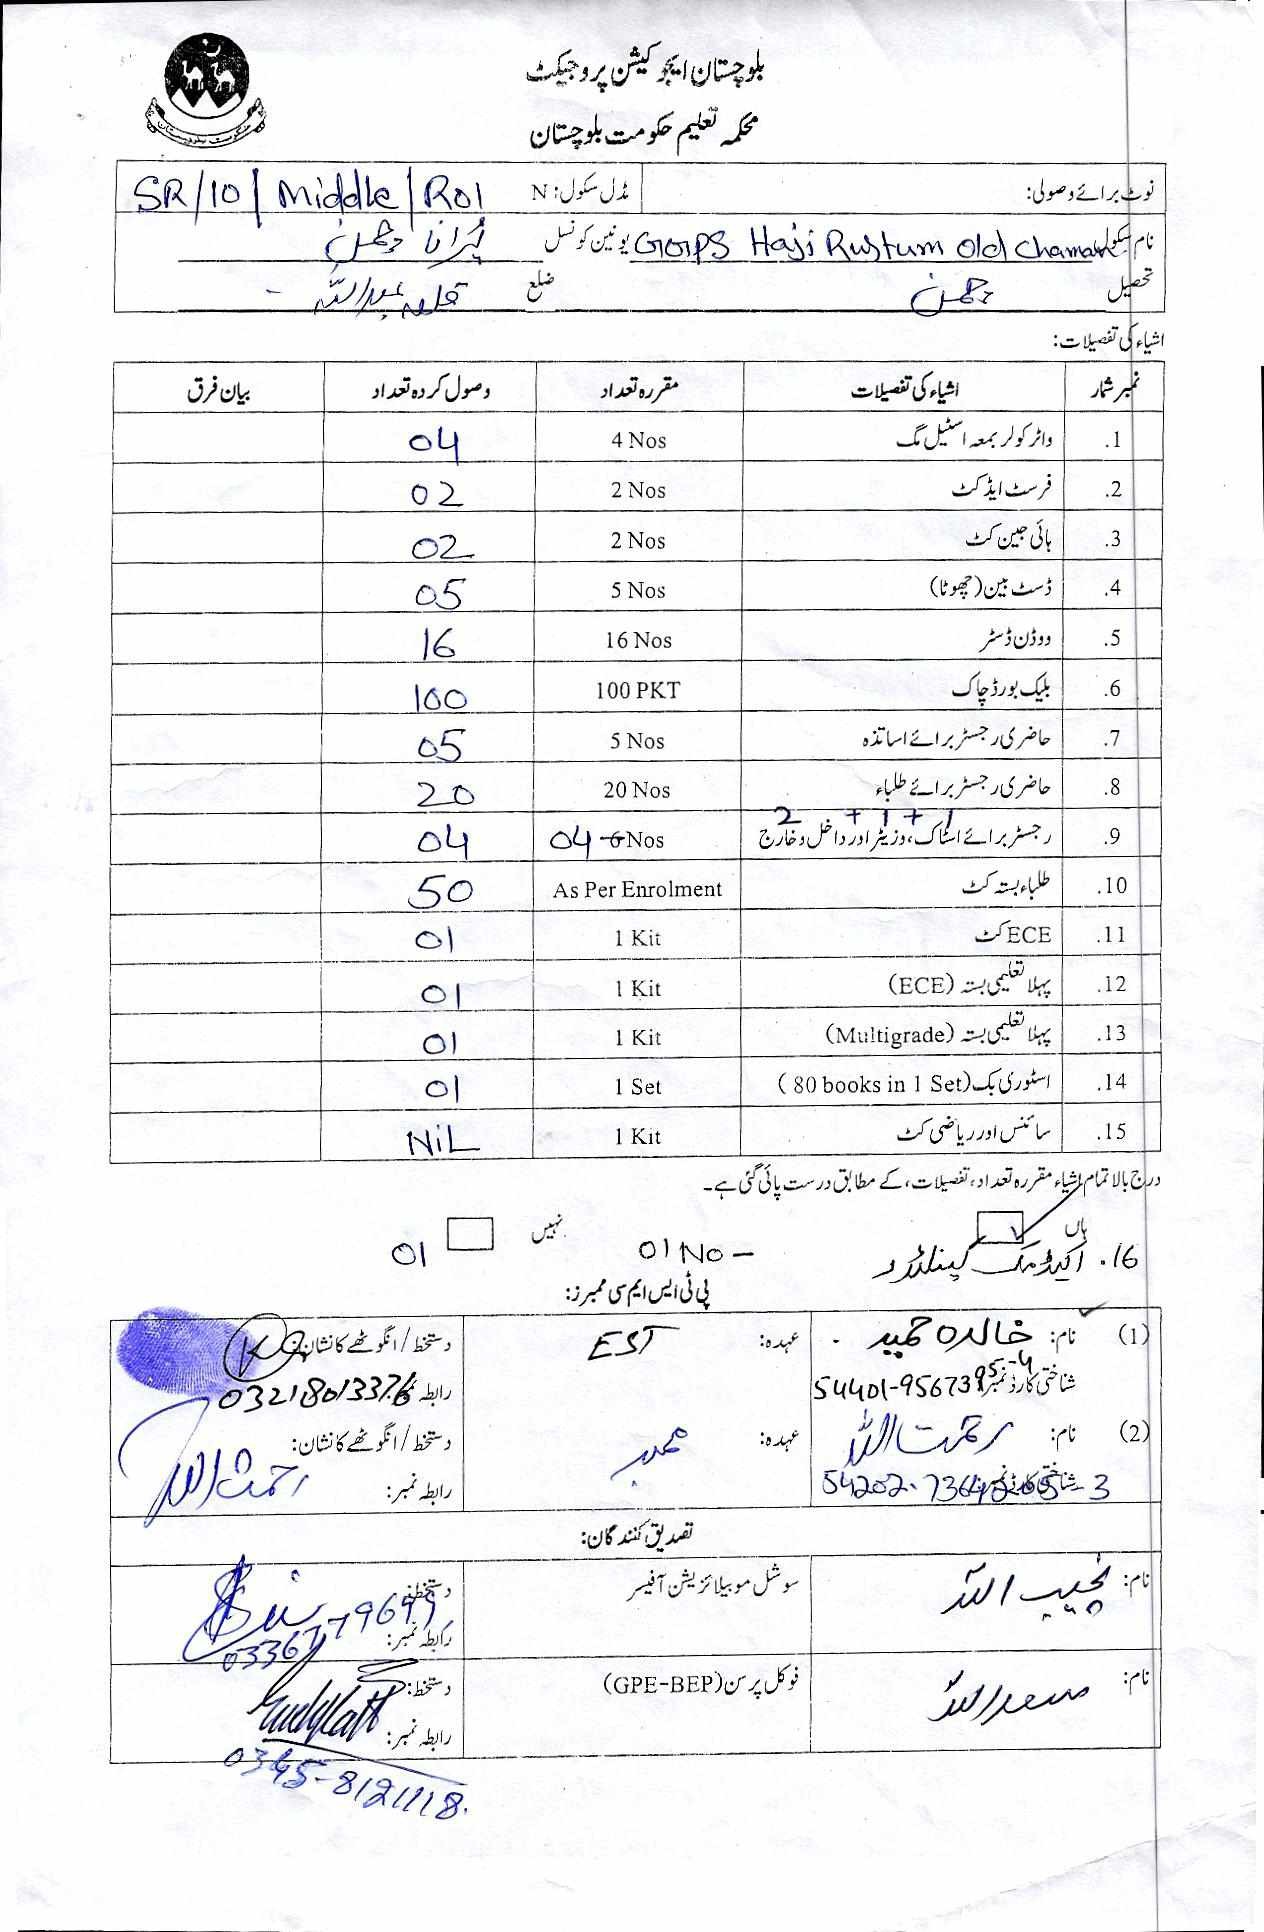 حکومت بلوچستان
بلوچستان ایجوکیشن پروجیکٹ
محکمہ تعلیم حکومت بلوچستان
نوٹ برائے وصولی: مڈل سکول: N SR/10/Middle/R01
نام سکول GGPS Haji Rustum Old Chaman یونین کونسل پرانا چمن
تحصیل چمن ضلع قلعہ عبداللہ
اشیاء کی تفصیلات:
نمبر شمار اشیاء کی تفصیلات مقررہ تعداد وصول کردہ تعداد بیان فرق
1. واٹر کولر بمعہ اسٹیل مگ 4 Nos 04
2. فرسٹ ایڈ کٹ 2 Nos 02
3. ہائی جین کٹ 2 Nos 02
4. ڈسٹ بین (چھوٹا) 5 Nos 05
5. ووڈن ڈسٹر 16 Nos 16
6. بلیک بورڈ چاک 100 PKT 100
7. حاضری رجسٹر برائے اساتذہ 5 Nos 05
8. حاضری رجسٹر برائے طلباء 20 Nos 20
2 + 1 + 1
9. رجسٹر برائے اسٹاک، وزیٹر اور داخل و خارج 04 6 Nos 04
10. طلباء بستہ کٹ As Per Enrolment 50
11. ECE کٹ 1 Kit 01
12. پہلا تعلیمی بستہ (ECE) 1 Kit 01
13. پہلا تعلیمی بستہ (Multigrade) 1 Kit 01
14. اسٹوری بک (80 books in 1 Set) 1 Set 01
15. سائنس اور ریاضی کٹ 1 Kit NiL
درج بالا تمام اشیاء مقررہ تعداد، تفصیلات، کے مطابق درست پائی گئی ہے۔
ہاں نہیں
16. اکیڈمک کیلنڈر 01 No - 01
پی ٹی ایس ایم سی ممبرز:
(1) نام: خالدہ حمید عہدہ: EST دستخط/انگوٹھے کا نشان:
شناختی کارڈ نمبر: 54401-9567395-4 رابطہ نمبر: 03218013376
(2) نام: رحمت اللہ عہدہ: ممبر دستخط/انگوٹھے کا نشان: رحمت اللہ
شناختی کارڈ نمبر: 54202-7364205-3 رابطہ نمبر:
تصدیق کنندگان:
نام: نجیب اللہ سوشل موبیلائزیشن آفیسر دستخط:
رابطہ نمبر: 03367779699
نام: سعد اللہ فوکل پرسن (GPE-BEP) دستخط:
رابطہ نمبر:
0345-8121118